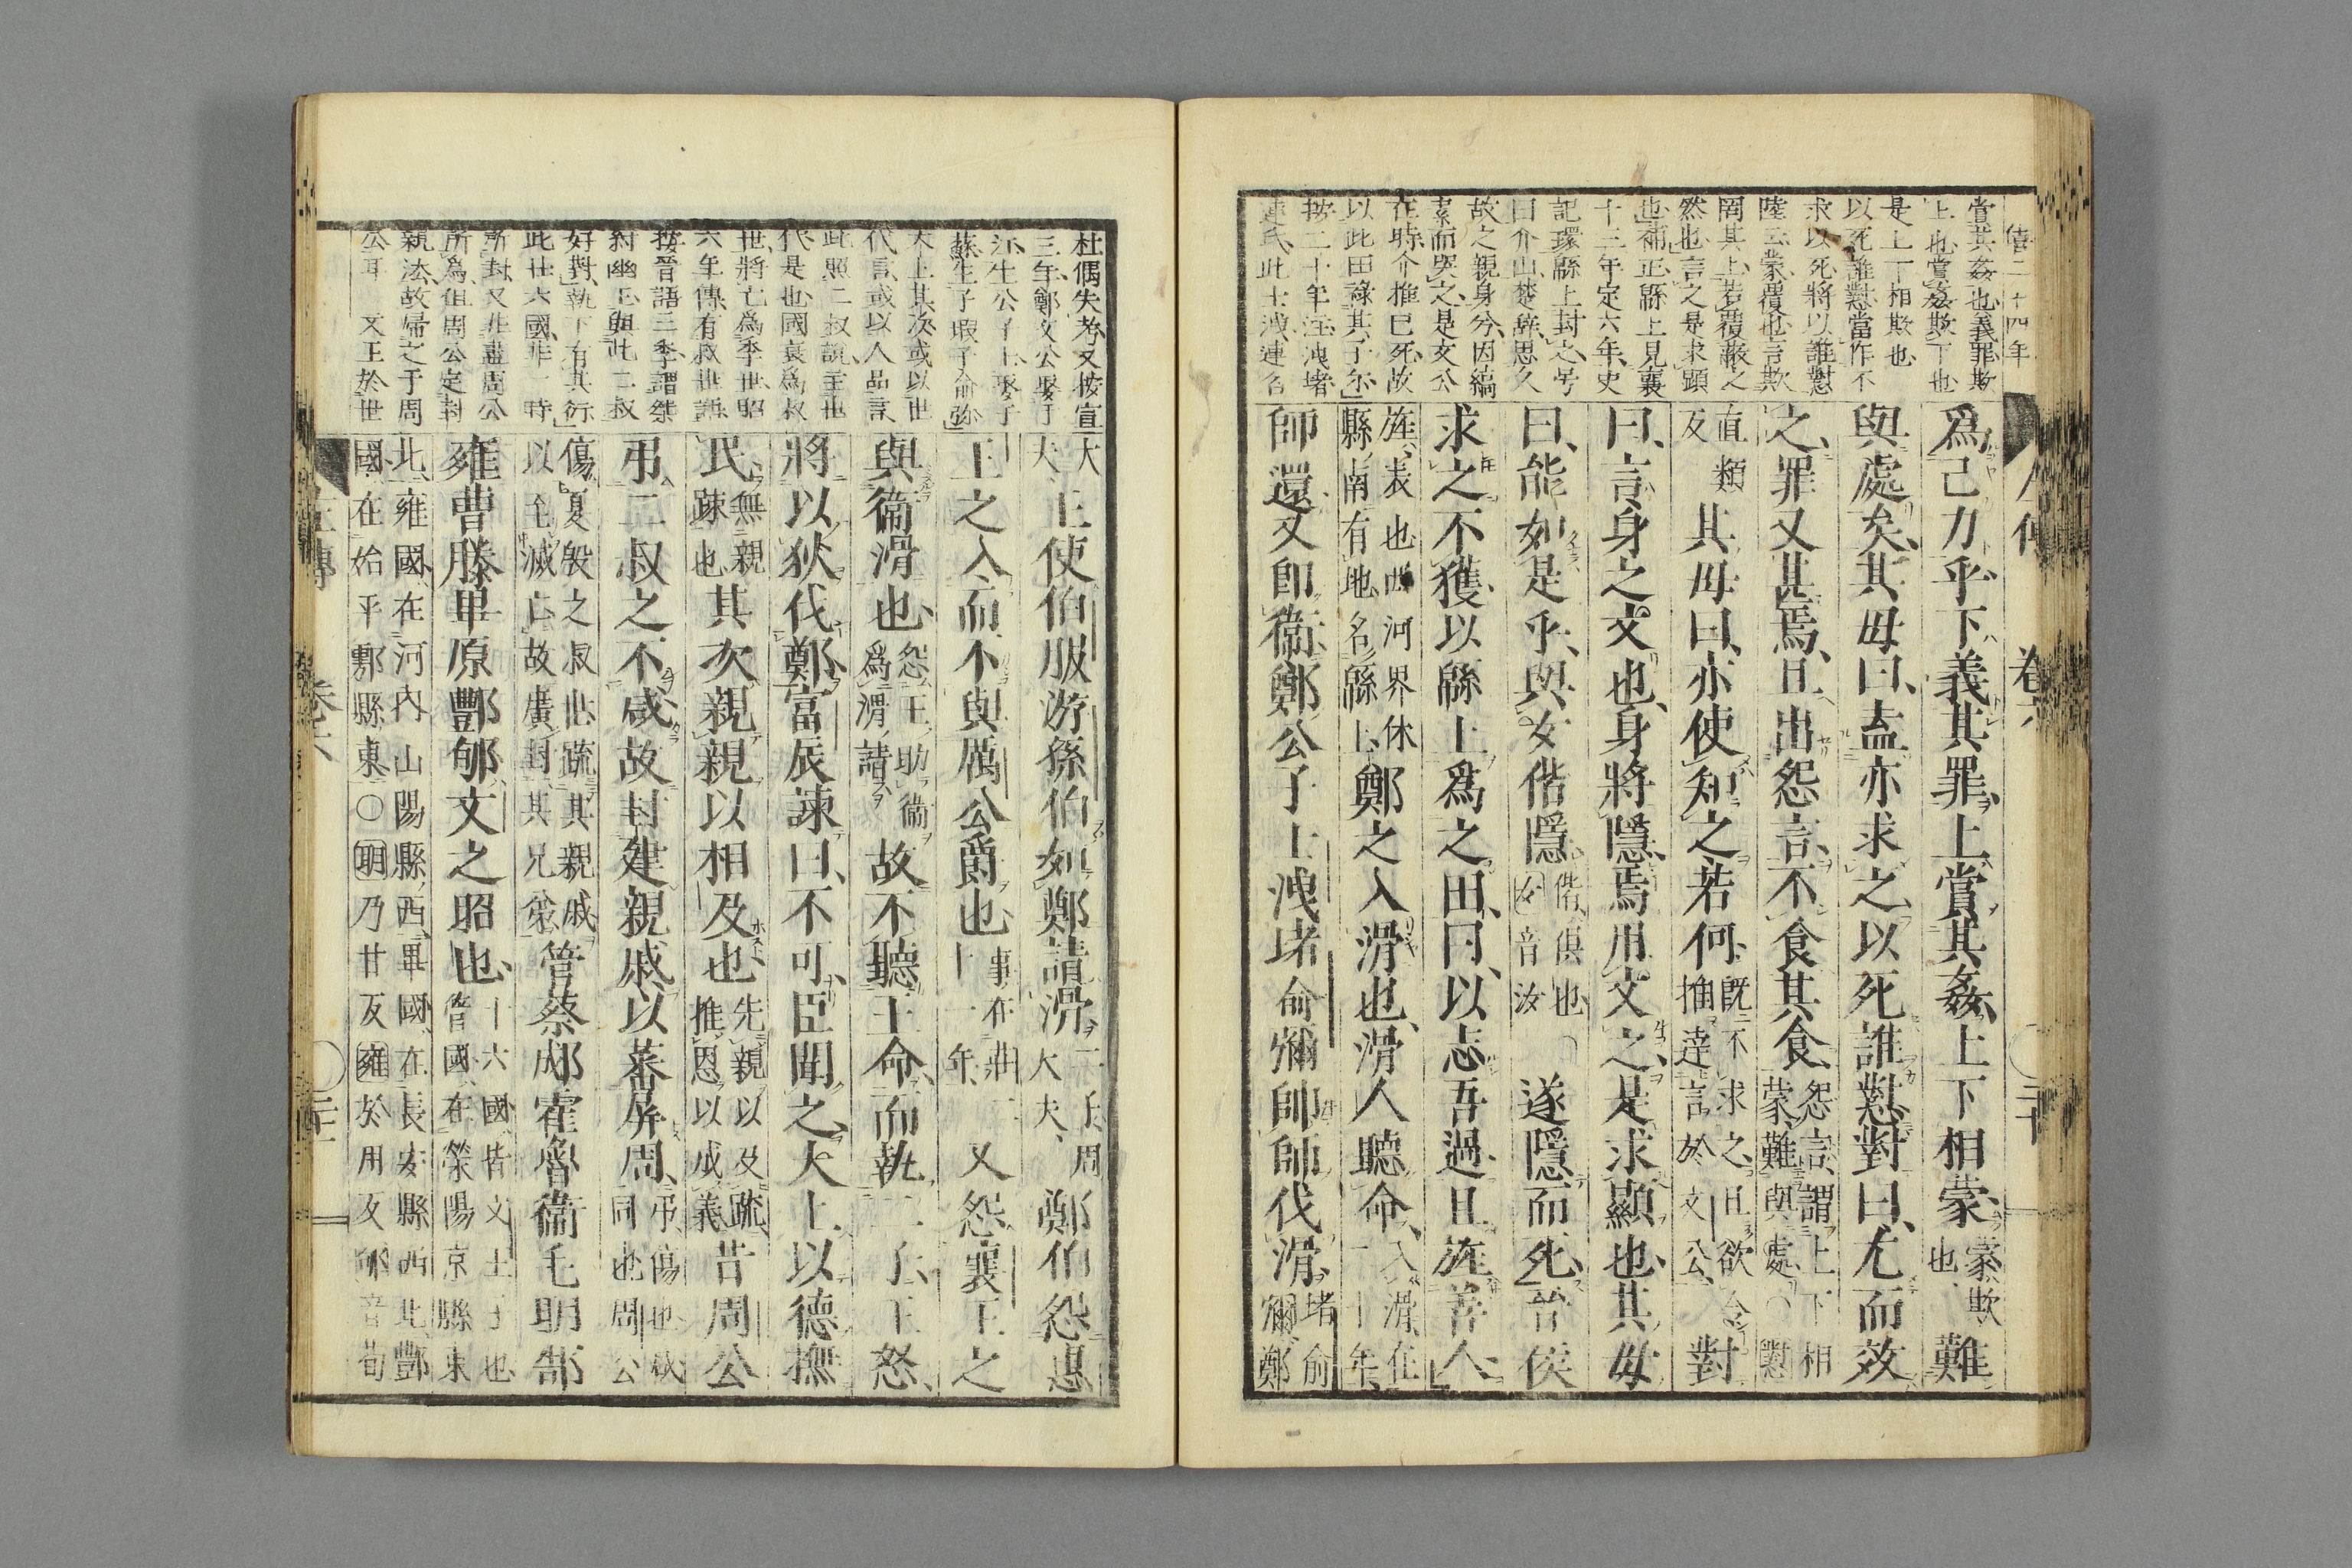 僖二十四年
賞其姦也義罪欺
上也賞姦欺下也
是上下相欺也
以死誰懟當作不
求以死將以誰懟
陸云蒙覆也言欺
罔其上若覆蔽之
然也言之是求顯
也補正緜上見襄
十三年定六年史
記環緜上封之号
曰介山楚辞思久
故之親身兮因縞
素而哭之是文公
在時介推已死故
以此田祿其子尓
按二十年注洩堵
連氏此士洩連名
爲己力乎下義其罪上賞其姦上下相蒙
蒙欺
也
難
與處矣其母曰盍亦求之以死誰懟對曰尤而效
之罪又甚焉且出怨言不食其食
怨言謂上下相
蒙難與處○懟
直類
反
其母曰亦使知之若何
既不求之且欲令
推達言於文公
對
曰言身之文也身將隱焉用文之是求顯也其母
曰能如是乎與女偕隱
偕俱也
女音汝
遂隱而死晉侯
求之不獲以緜上爲之田曰以志吾過且旌善人
旌表也西河界休
縣南有地名緜上
鄭之入滑也滑人聽命
入滑在
二十年
師還又即衞鄭公子士洩堵俞彌帥師伐滑
堵俞
彌鄭
左傳
卷六
二十
杜偶失考又按宣
三年鄭文公娶于
江生公子士娶于
蘇生子瑕子俞弥
大上其次或以世
代言或以人品言
此照二叔說主世
代是也國衰爲叔
世將亡爲季世昭
六年傳有叔世語
按晉語三季謂桀
紂幽王與此二叔
好對執下有其字
此廿六國非一時
所封又非盡周公
所爲但周公定封
親法故歸之于周
公耳 文王於世
大
夫
王使伯服游孫伯如鄭請滑
二子周
大夫
鄭伯怨惠
王之入而不與厲公爵也
事在莊二
十一年
又怨襄王之
與衞滑也
怨王助衞
爲滑請
故不聽王命而執二子王怒
將以狄伐鄭富辰諫曰不可臣聞之大上以德撫
民
無親
疎也
其次親親以相及也
先親以及疏
推恩以成義
昔周公
弔二叔之不咸故封建親戚以蕃屏周
弔傷也咸
同也周公
傷夏殷之叔世疏其親戚
以至滅亡故廣封其兄弟
管蔡郕霍魯衞毛聃郜
雍曹滕畢原酆郇文之昭也
十六國皆文王子也
管國在滎陽京縣東
北雍國在河內山陽縣西畢國在長安縣西北酆
國在始平鄠縣東○聃乃甘反雍於用反郇音荀
左傳
卷六
二十一